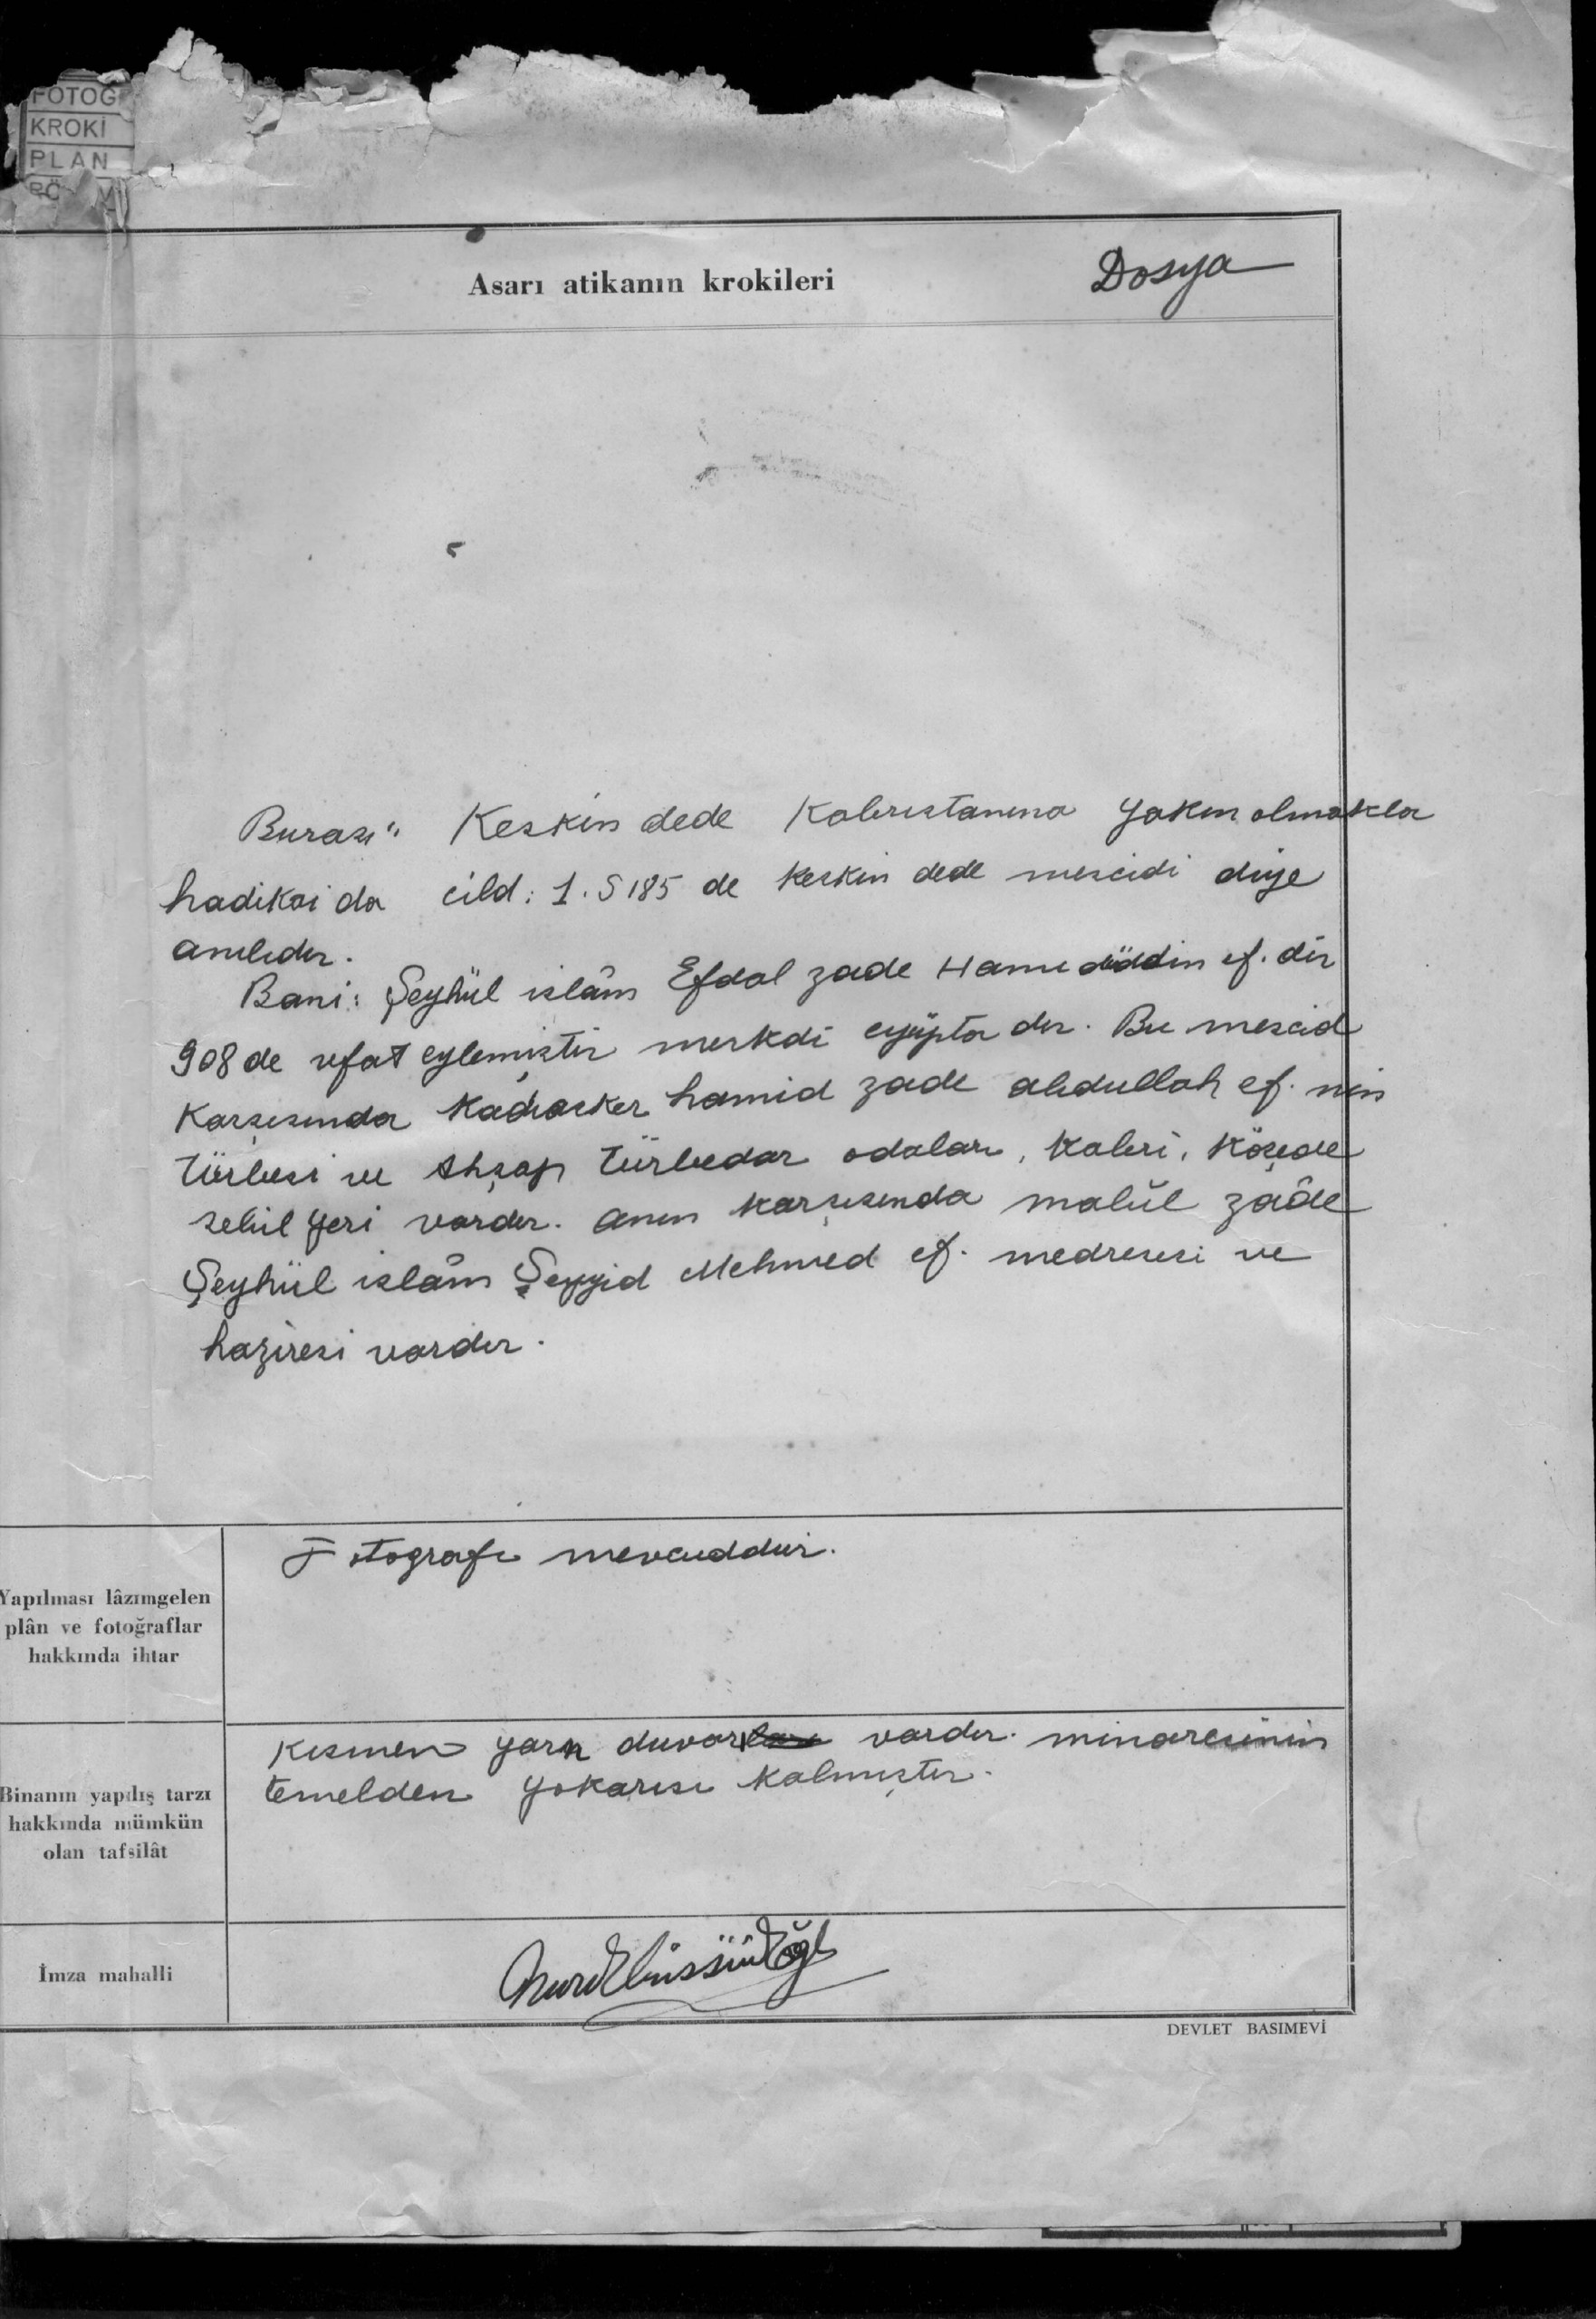 FOTOĞ
KROKİ
PLAN
Asarı atikanın krokileri
Dosya
Burası" Keskin dede Kabrıstanına yakın olmakla
hadikai da cild: 1. S 185 de keskin dede mescidi diye
anılıdır.
Bani: Şeyhül islâm Efdal zade Hamidüddin ef. dir
908 de vefat eylemiştir merkdi eyüpta dır. Bu mescid
karşısında kadıasker hamid zade abdullah ef. nin
türbesi ve ahşap türbedar odaları, kabri, köşede
sebil yeri vardır. anın karşısında malûl zâde
Şeyhül islâm Şeyyid Mehmed ef. medresesi ve
haziresi vardır.
Yapılması lâzımgelen
plân ve fotoğraflar
hakkında ihtar
Fotografı mevcuddur.
Binanın yapılış tarzı
hakkında mümkün
olan tafsilât
Kısmen yarı duvarları vardır. minaresinin
temelden yokarısı kalmıştır.
İmza mahalli
DEVLET BASIMEVİ